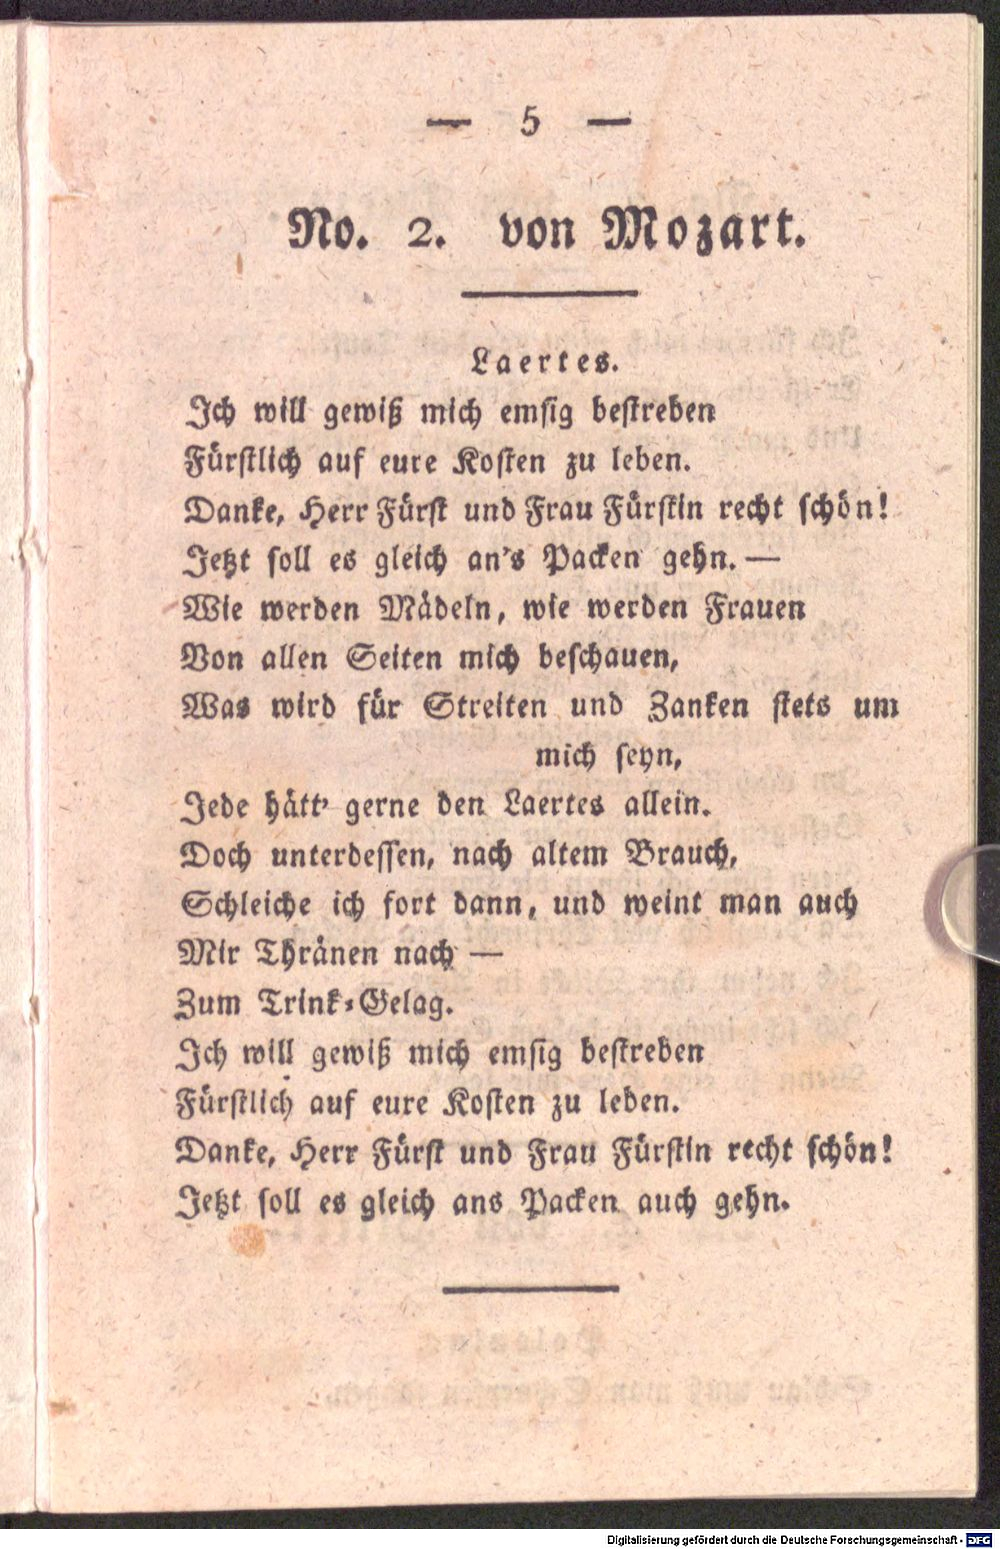 — 5 —
No. 2. von Mozart.
Laertes.
Ich will gewiß mich emsig bestreben
Fürstlich auf eure Kosten zu leben.
Danke, Herr Fürst und Frau Fürstin recht schön!
Jetzt soll es gleich an's Packen gehn. —
Wie werden Mädeln, wie werden Frauen
Von allen Seiten mich beschauen,
Was wird für Streiten und Zanken stets um
mich seyn,
Jede hätt' gerne den Laertes allein.
Doch unterdessen, nach altem Brauch,
Schleiche ich fort dann, und weint man auch
Mir Thränen nach —
Zum Trink-Gelag.
Ich will gewiß mich emsig bestreben
Fürstlich auf eure Kosten zu leben.
Danke, Herr Fürst und Frau Fürstin recht schön!
Jetzt soll es gleich ans Packen auch gehn.
Digitalisierung gefördert durch die Deutsche Forschungsgemeinschaft - DFG